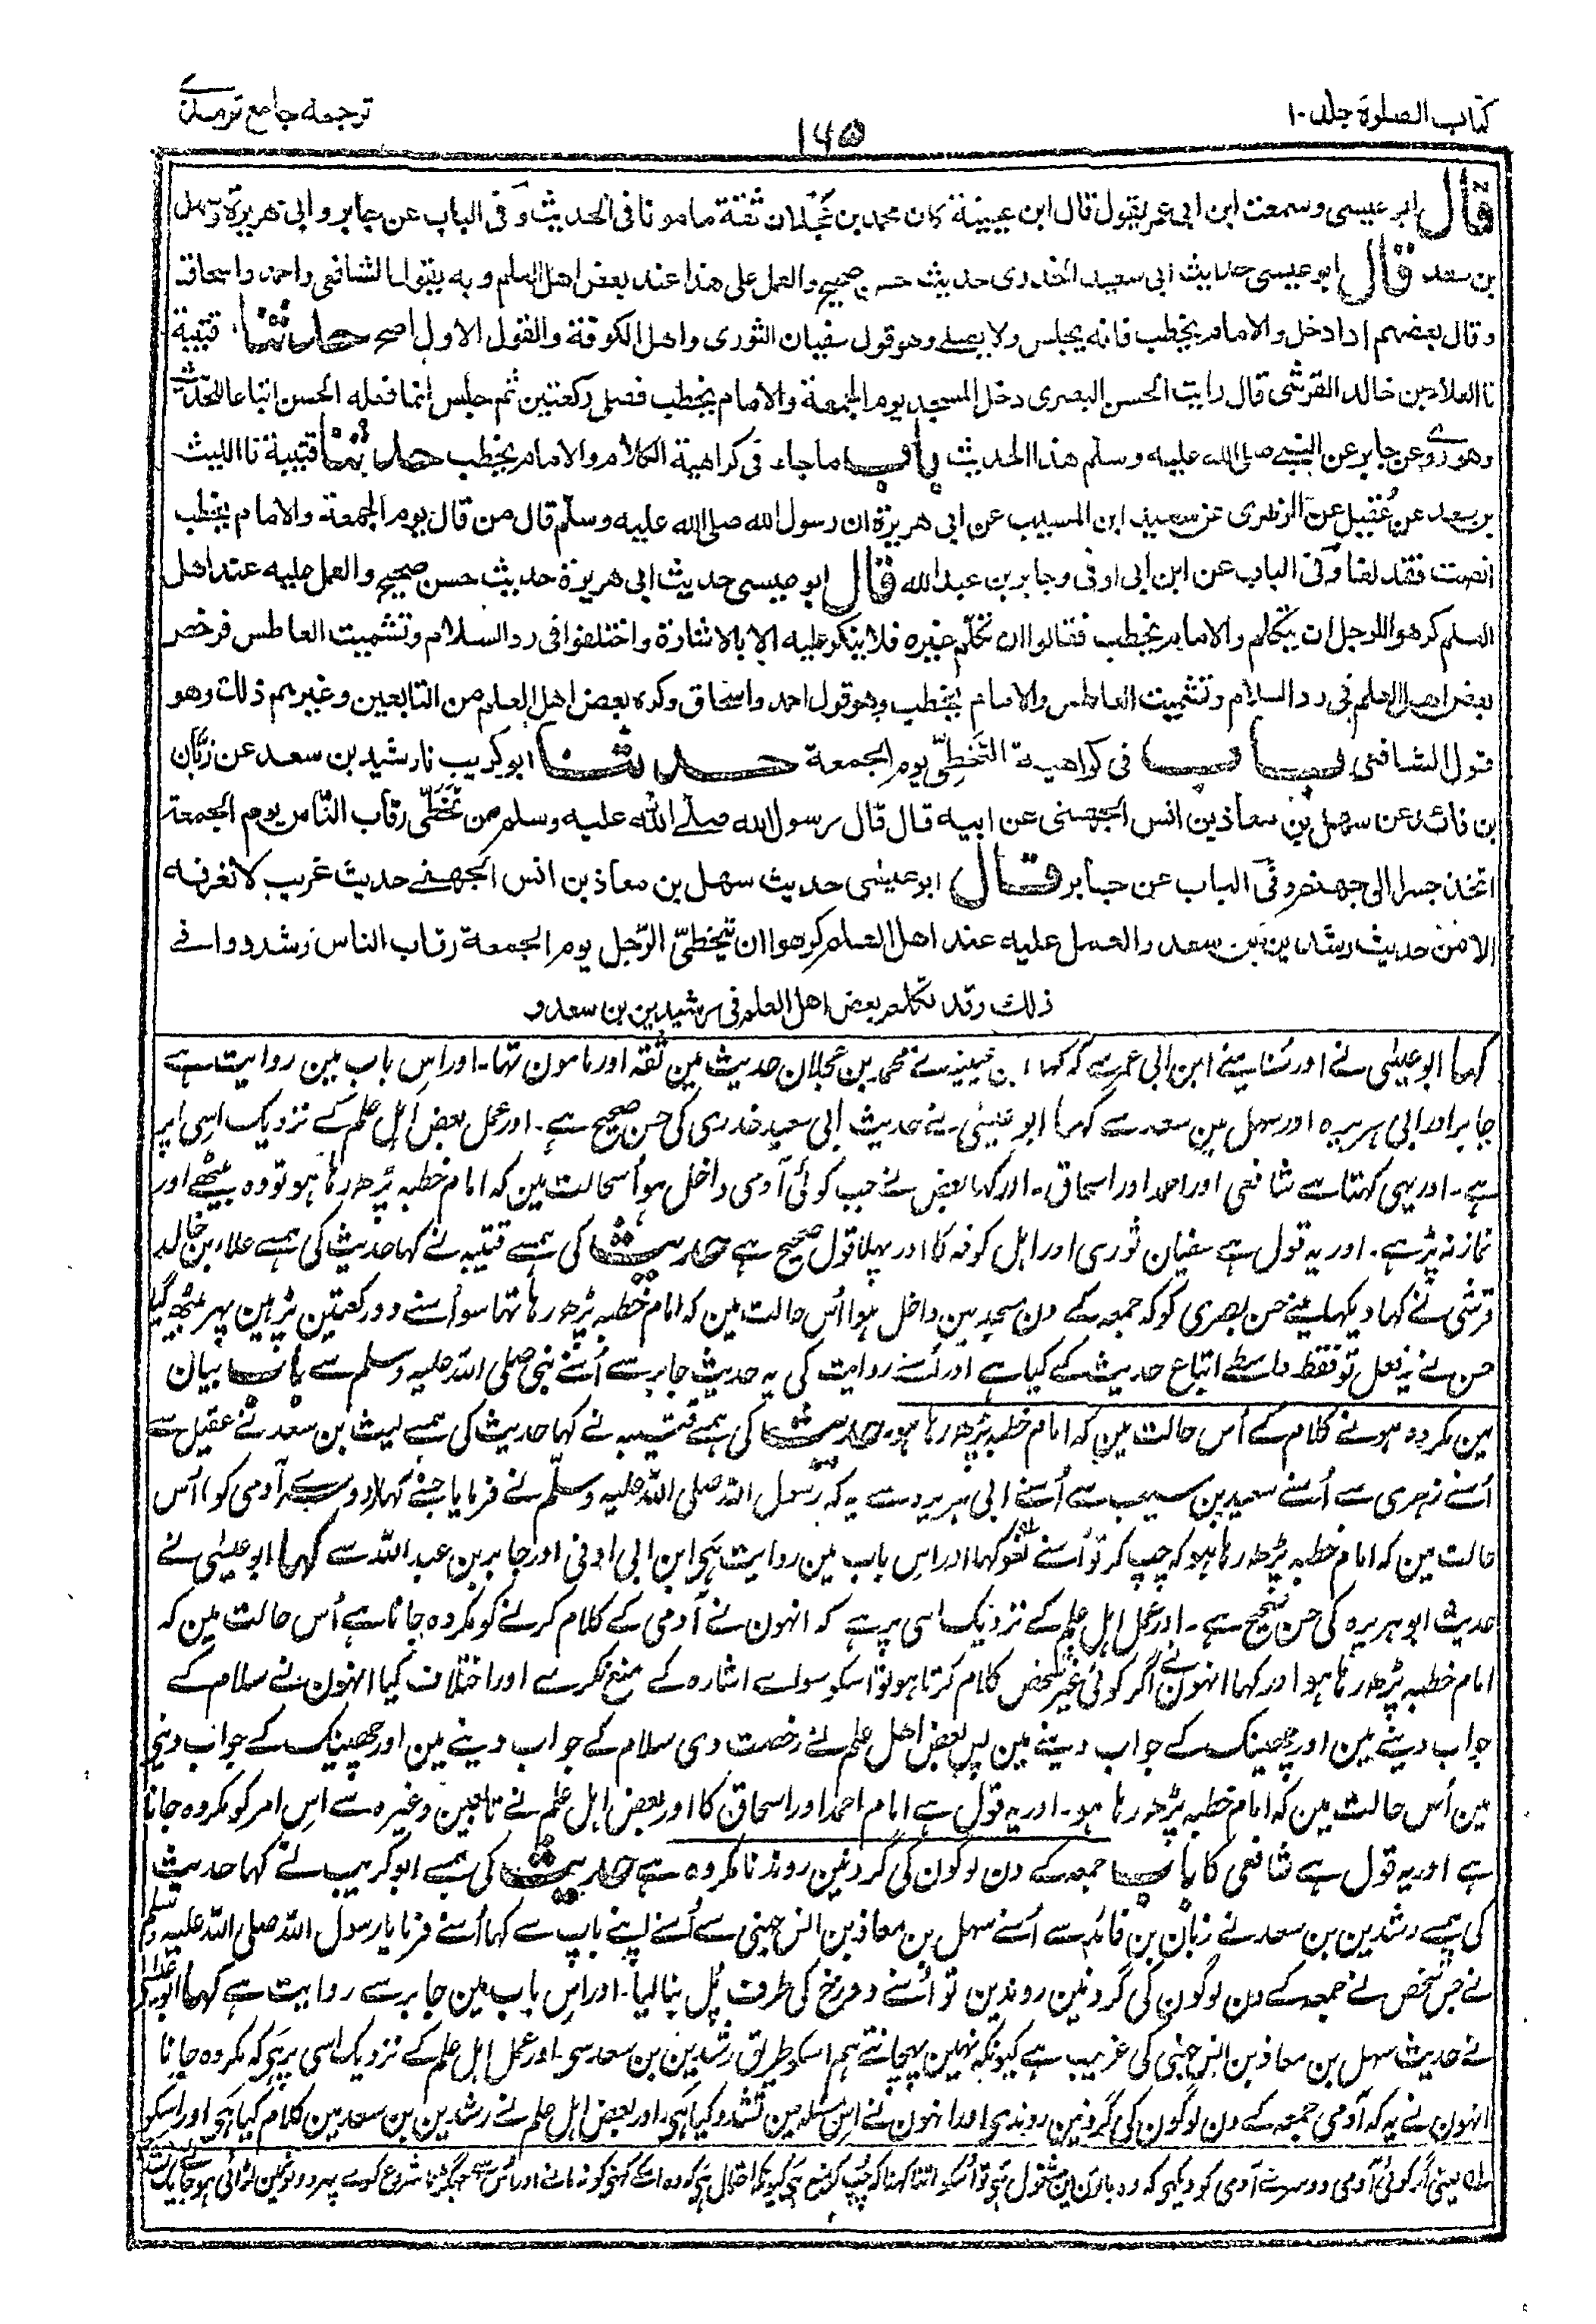 کتاب الصلوة جلد ۱۰
۱۶۵
ترجمه جامع ترمذی
قال ابو عیسی وسمعت ابن ابی عمر یقول قال ابن عیینة کان محمد بن عَجْلان ثقة مامونا فی الحدیث وفی الباب عن جابر وابی هریرة وسهل
بن سعد قال ابو عیسی حدیث ابی سعید الخدری حدیث حسن صحیح والعمل علی هذا عند بعض اهل العلم وبه یقول الشافعی واحمد واسحاق
وقال بعضهم اذا دخل والامام یخطب فانه یجلس ولا یصلے وهو قول سفیان الثوری واهل الکوفة والقول الاول اصح حدثنا قتیبة
نا العلاء بن خالد القرشی قال رایت الحسن البصری دخل المسجد یوم الجمعة والامام یخطب فصلی رکعتین ثم جلس انما فعله الحسن اتباعا للحدیث
وهو روی عن جابر عن النبی صلی الله علیه وسلم هذا الحدیث باب ما جاء فی کراهیة الکلام والامام یخطب حدثنا قتیبة نا اللیث
بن سعد عن عُقیل عن الزهری عن سعید ابن المسیب عن ابی هریرة ان رسول الله صلی الله علیه وسلم قال من قال یوم الجمعة والامام یخطب
انصت فقد لغا وفی الباب عن ابن ابی اوفی وجابر بن عبد الله قال ابو عیسی حدیث ابی هریرة حدیث حسن صحیح والعمل علیه عند اهل
العلم کرهوا للرجل ان یتکلم والامام یخطب فقالوا ان تکلّم غیره فلا ینکر علیه الا بالاشارة واختلفوا فی رد السلام وتشمیت العاطس فرخص
بعض اهل العلم فی رد السلام وتشمیت العاطس والامام یخطب وهو قول احمد واسحاق وکره بعض اهل العلم من التابعین وغیرهم ذلک وهو
قول الشافعی باب فی کراهیة التَّخَطِّی یوم الجمعة حدثنا ابو کریب نا رشید بن سعد عن زبّان
بن فائد عن سهل بن معاذ بن انس الجهنی عن ابیه قال قال رسول الله صلے الله علیه وسلم من تَخَطّی رقاب النّاس یوم الجمعة
اتخذ جسرا الی جهنم وفی الباب عن جابر قال ابو عیسٰی حدیث سهل بن معاذ بن انس الجهنے حدیث غریب لا نعرفه
الا من حدیث رشدین بن سعد والعمل علیه عند اهل العلم کرهوا ان یتخطیّ الرّجل یوم الجمعة رقاب الناس وشددوا فے
ذلک وقد تکلم بعض اهل العلم فی رشیدین بن سعد و
کہا ابو عیسٰی نے اور سُنا مینے ابن ابی عمر سے کہ کہا ابن عیینہ نے محمد بن عجلان حدیث مین ثقہ اور مامون تہا۔ اور اس باب مین روایت ہے
جابر اور ابی ہریرہ اور سہل بن سعد سے کہا ابو عیسٰی نے حدیث ابی سعید خدری کی حسن صحیح ہے۔ اور عمل بعض اہل علم کے نزدیک اسی پر
ہے۔ اور یہی کہتا ہے شافعی اور احمد اور اسحاق۔ اور کہا بعض نے جب کوئی آدمی داخل ہو اُس حالت مین کہ امام خطبہ پڑھ رہا ہو تو وہ بیٹھے اور
نماز نہ پڑہے۔ اور یہ قول ہے سفیان ثوری اور اہل کوفہ کا اور پہلا قول صحیح ہے حدیث کی ہمسے قتیبہ نے کہا حدیث کی ہمسے علاء بن خالد
قرشی نے کہا دیکہا مینے حسن بصری کو کہ جمعہ کے دن مسجد مین داخل ہوا اُس حالت مین کہ امام خطبہ پڑھ رہا تہا سو اُسنے دو رکعتین پڑہین پہر بیٹھ گیا
حسن نے یہ فعل تو فقط واسطے اتباع حدیث کے کیا ہے اور اُسنے روایت کی یہ حدیث جابر سے اُسنے نبی صلی اللہ علیہ وسلم سے باب بیان
مین مکروہ ہونے کلام کے اُس حالت مین کہ امام خطبہ پڑھ رہا ہو۔ حدیث کی ہمسے قتیبہ نے کہا حدیث کی ہمسے لیث بن سعد نے عقیل سے
اُسنے زہری سے اُسنے سعید بن مسیب سے اُسنے ابی ہریرہ سے یہ کہ رسول اللہ صلی اللہ علیہ وسلّم نے فرمایا جسنے کہا (دوسرے آدمی کو) اُس
حالت مین کہ امام خطبہ پڑھ رہا ہو کہ چپ کر تو اُسنے لغو کہا اور اس باب مین روایت ہی ابن ابی اوفی اور جابر بن عبد اللہ سے کہا ابو عیسٰی نے
حدیث ابو ہریرہ کی حسن صحیح ہے۔ اور عمل اہل علم کے نزدیک اسی پر ہے کہ انہون نے آدمی کے کلام کرنے کو مکروہ جانا ہے اُس حالت مین کہ
امام خطبہ پڑھ رہا ہو اور کہا انہون نے اگر کوئی غیر شخص کلام کرتا ہو تو اسکو سواے اشارہ کے منع نکرے اور اختلاف کیا انہون نے سلام کے
جواب دینے مین اور چھینک کے جواب دینے مین پس بعض اھل علم نے رخصت دی سلام کے جواب دینے مین اور چھینک کے جواب دینے
مین اُس حالت مین کہ امام خطبہ پڑھ رہا ہو۔ اور یہ قول ہے امام احمد اور اسحاق کا اور بعض اہل علم نے تابعین وغیرہ سے اس امر کو مکروہ جانا
ہے اور یہ قول ہے شافعی کا باب جمعہ کے دن لوگون کی گردنین روندنا مکروہ ہے حدیث کی ہمسے ابو کریب نے کہا حدیث
کی ہمسے رشدین بن سعد نے زبان بن فائد سے اُسنے سہل بن معاذ بن انس جہنی سے اُسنے اپنے باپ سے کہا اُسنے فرمایا رسول اللہ صلی اللہ علیہ وسلم
نے جس شخص نے جمعہ کے دن لوگون کی گردنین روندین تو اُسنے دوزخ کی طرف پُل بنا لیا۔ اور اس باب مین جابر سے روایت ہے کہا ابو عیسٰی
نے حدیث سہل بن معاذ بن انس جہنی کی غریب ہے کیونکہ نہین پہچانتے ہم اسکو طریق رشدین بن سعد سی۔ اور عمل اہل علم کے نزدیک اسی پر ہی کہ مکروہ جانا
انہون نے یہ کہ آدمی جمعہ کے دن لوگون کی گردنین روندی اور انہون نے اس مسئلہ مین تشدد کیا ہی۔ اور بعض اہل علم نے رشدین بن سعد مین کلام کیا ہی اور اسکو
یعنی اگر کوئی آدمی دوسرے آدمی کو دیکہی کہ وہ باتون مین مشغول ہی تو اُسکو اتنا کہنا کہ چُپ کر منع ہی کیونکہ احتمال ہی کہ وہ اسکے کہنی کو نہ مانے اور اُس سے جہگڑنا شروع کرے پہر دونو مین لڑائی ہو جائی